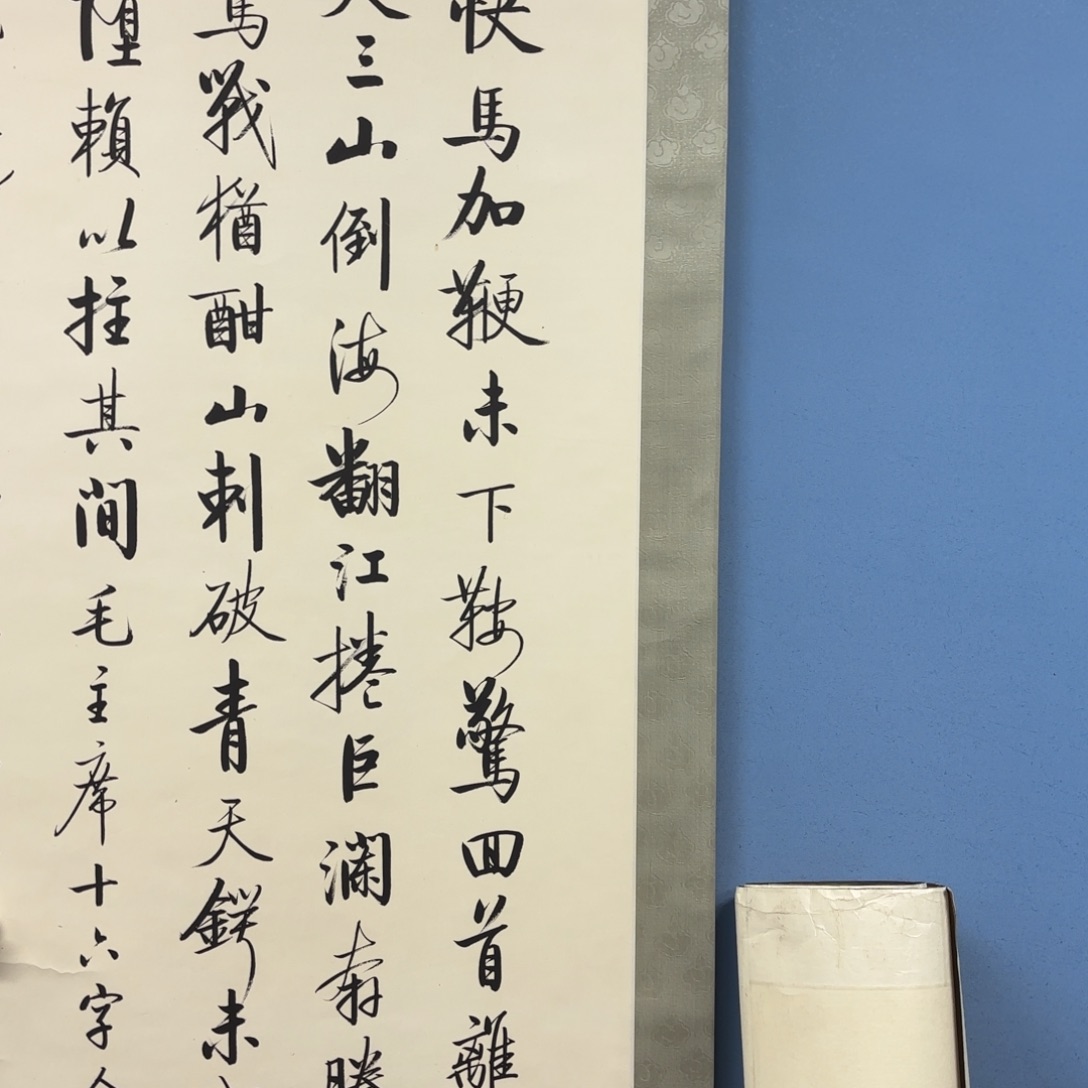 快馬加鞭未下鞍驚回首離
尺三山倒海翻江捲巨瀾奔騰
馬戰猶酣山刺破青天鍔未
墮賴以拄其間毛主席十六字令